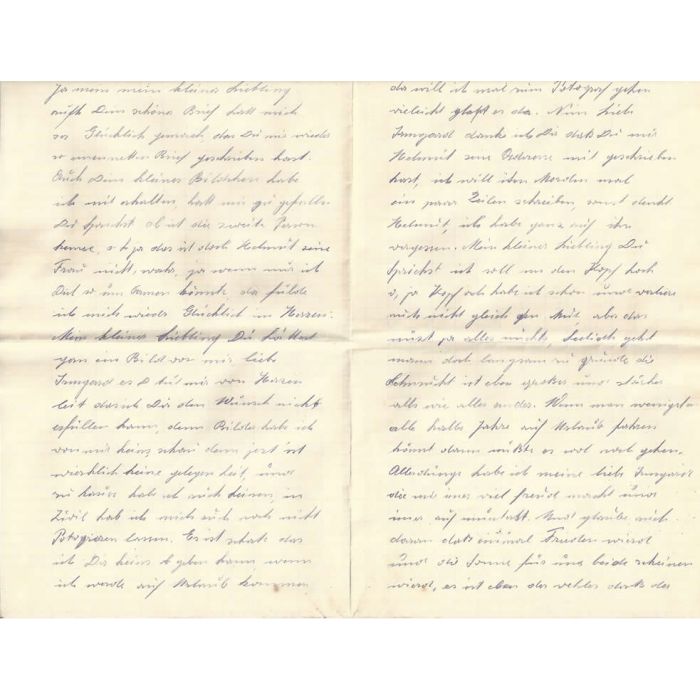 Ja mein mein kleines Liebling
auch Dein schöner Brief hatt mich
so Glücklich gemach, das Du mir wieder
so einen netten Brief geschrieben hast.
Auch Dein kleines Bildchen habe
ich mit erhalten, hatt mir gu gefallen
Du sprichst ob ist die zweite Person
kenne, ja das ist doch Helmut seine
Frau nicht, wahr, ja wenn mir ich
Dich so im Armen könnte, da fülde
ich mich wieder Glücklich im Herzen.
Mein kleines Liebling Du hättest
gern ein Bild von mir, liebe
Irmgard es tut mir von Herzen
leit darich Dir den Wünsch nicht
erfüllen kann, denn Bilder hab ich
von mir keins schau denn jest ist
wierklich keine gelegen heit, und
zu hause hab ich auch keinen, in
Zivil hab ich mich auch noch nicht
Potogfieren lassen. Es ist schate das
ich Dir keins geben kann, wenn
ich werde auf Urlaub kommen
da will ich mal zum Potograf gehen
vieleicht glapt es da. Nun liebe
Irmgard danke ich Dir dats Du mir
Helmut seine Adresse mit geschrieben
hast, ich will ihm Morden mal
ein paar Zeilen schreiben, sonst denkt
Helmut, ich habe ganz auf ihn
vergessen. Mein kleines Liebling Du
sprichst ich soll nu den Kopf hoch
ja Kopf och hab ich schon und verliere
auch nicht gleich den Mut, aber das
nützt ja alles nichts, Seelisch geht
mann doch langsam zu gründe die
Sehnsucht ist eben groser und stärker
alls wie alles ander. Wenn man wenigsten
alle halbe Jahre auf Urlaub fahren
könnt dann würde es wol noch gehen.
Allerdings habe ich meine liebe Irmgard
die mir imer viel freude macht und
imer auf müntert. Und glaube mich
daran dats einmal Frieden wierd
und die Sonne für uns beide scheinen
wierd, es ist eben der vehler dats der